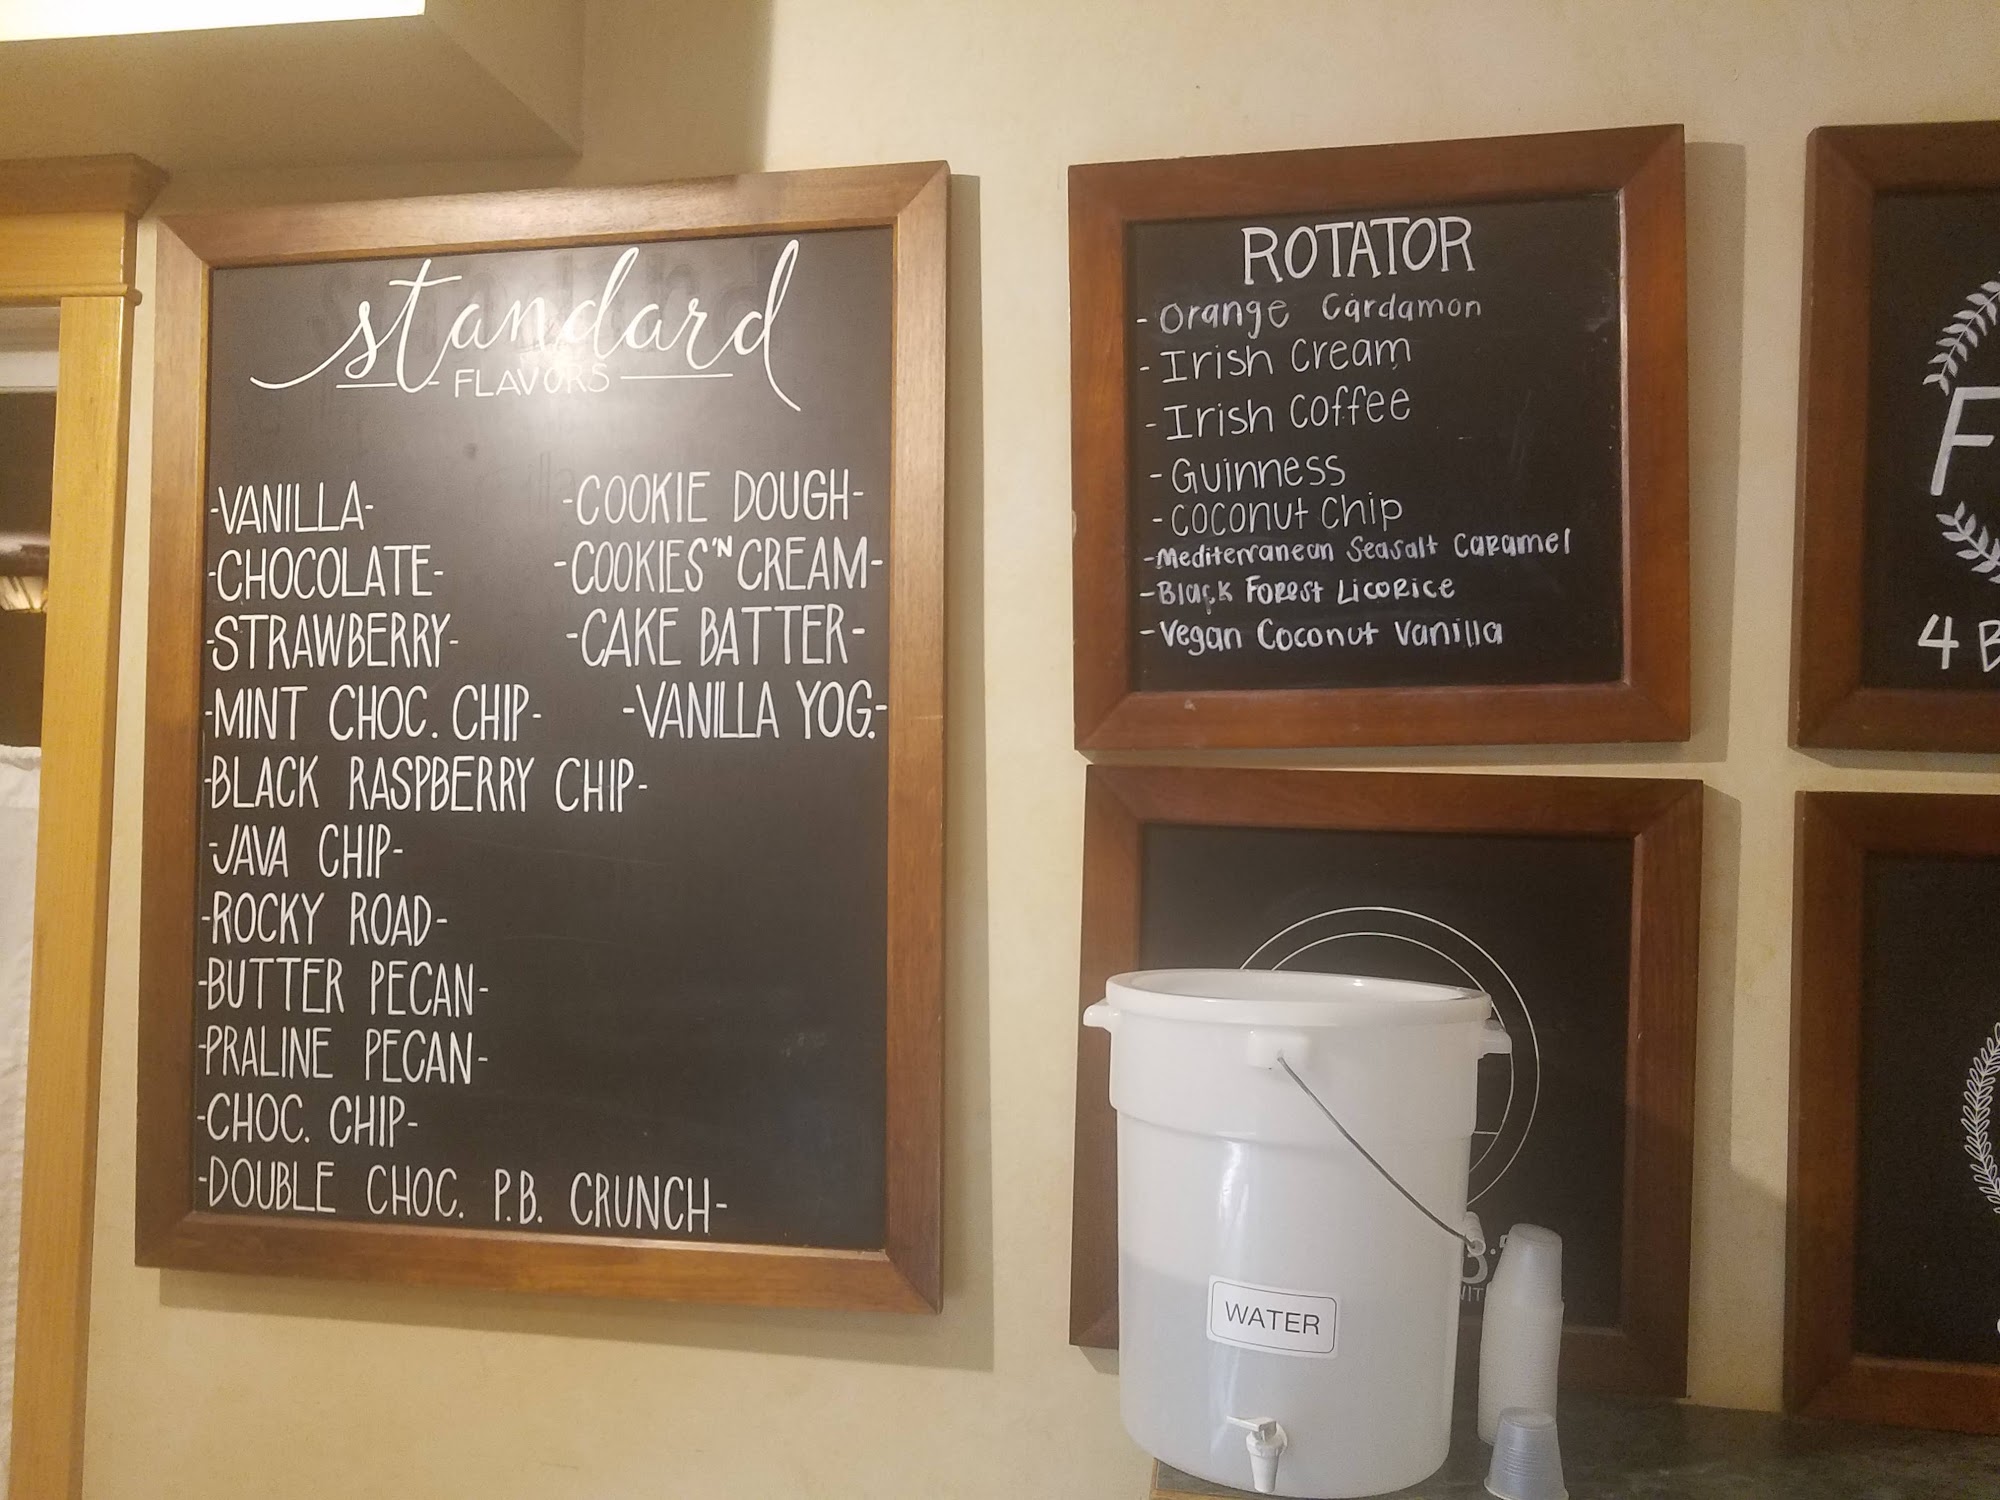 standard
FLAVORS
-VANILLA-
-CHOCOLATE-
-STRAWBERRY-
-MINT CHOC. CHIP-
-BLACK RASPBERRY CHIP-
-JAVA CHIP-
-ROCKY ROAD-
-BUTTER PECAN-
-PRALINE PECAN-
-CHOC. CHIP-
-DOUBLE CHOC. P.B. CRUNCH-
-COOKIE DOUGH-
-COOKIES'N'CREAM-
-CAKE BATTER-
-VANILLA YOG.-
ROTATOR
- Orange Cardamon
- Irish Cream
- Irish Coffee
- Guinness
- Coconut Chip
- Mediterranean Seasalt Caramel
- Black Forest Licorice
- Vegan Coconut Vanilla
F
4 B
WATER